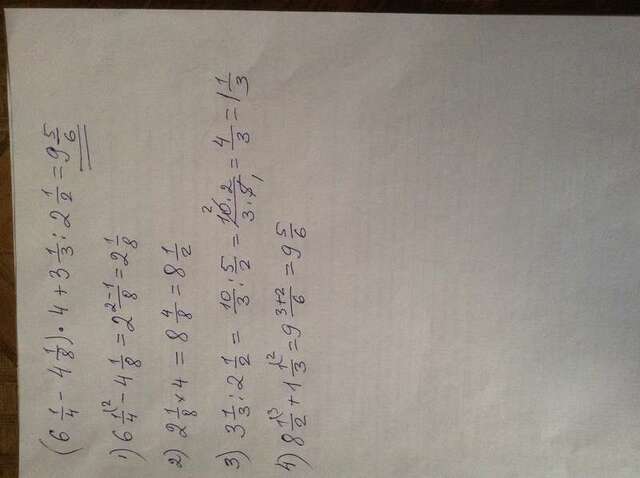 (6 1/4 - 4 1/8) · 4 + 3 1/3 : 2 1/2 = 9 5/6
1) 6 1/4 \2 - 4 1/8 = 2 2-1/8 = 2 1/8
2) 2 1/8 × 4 = 8 4/8 = 8 1/2
3) 3 1/3 : 2 1/2 = 10/3 : 5/2 = 10 2 · 2/3 · 5 1 = 4/3 = 1 1/3
4) 8 1/2 \3 + 1 1/3 \2 = 9 3+2/6 = 9 5/6